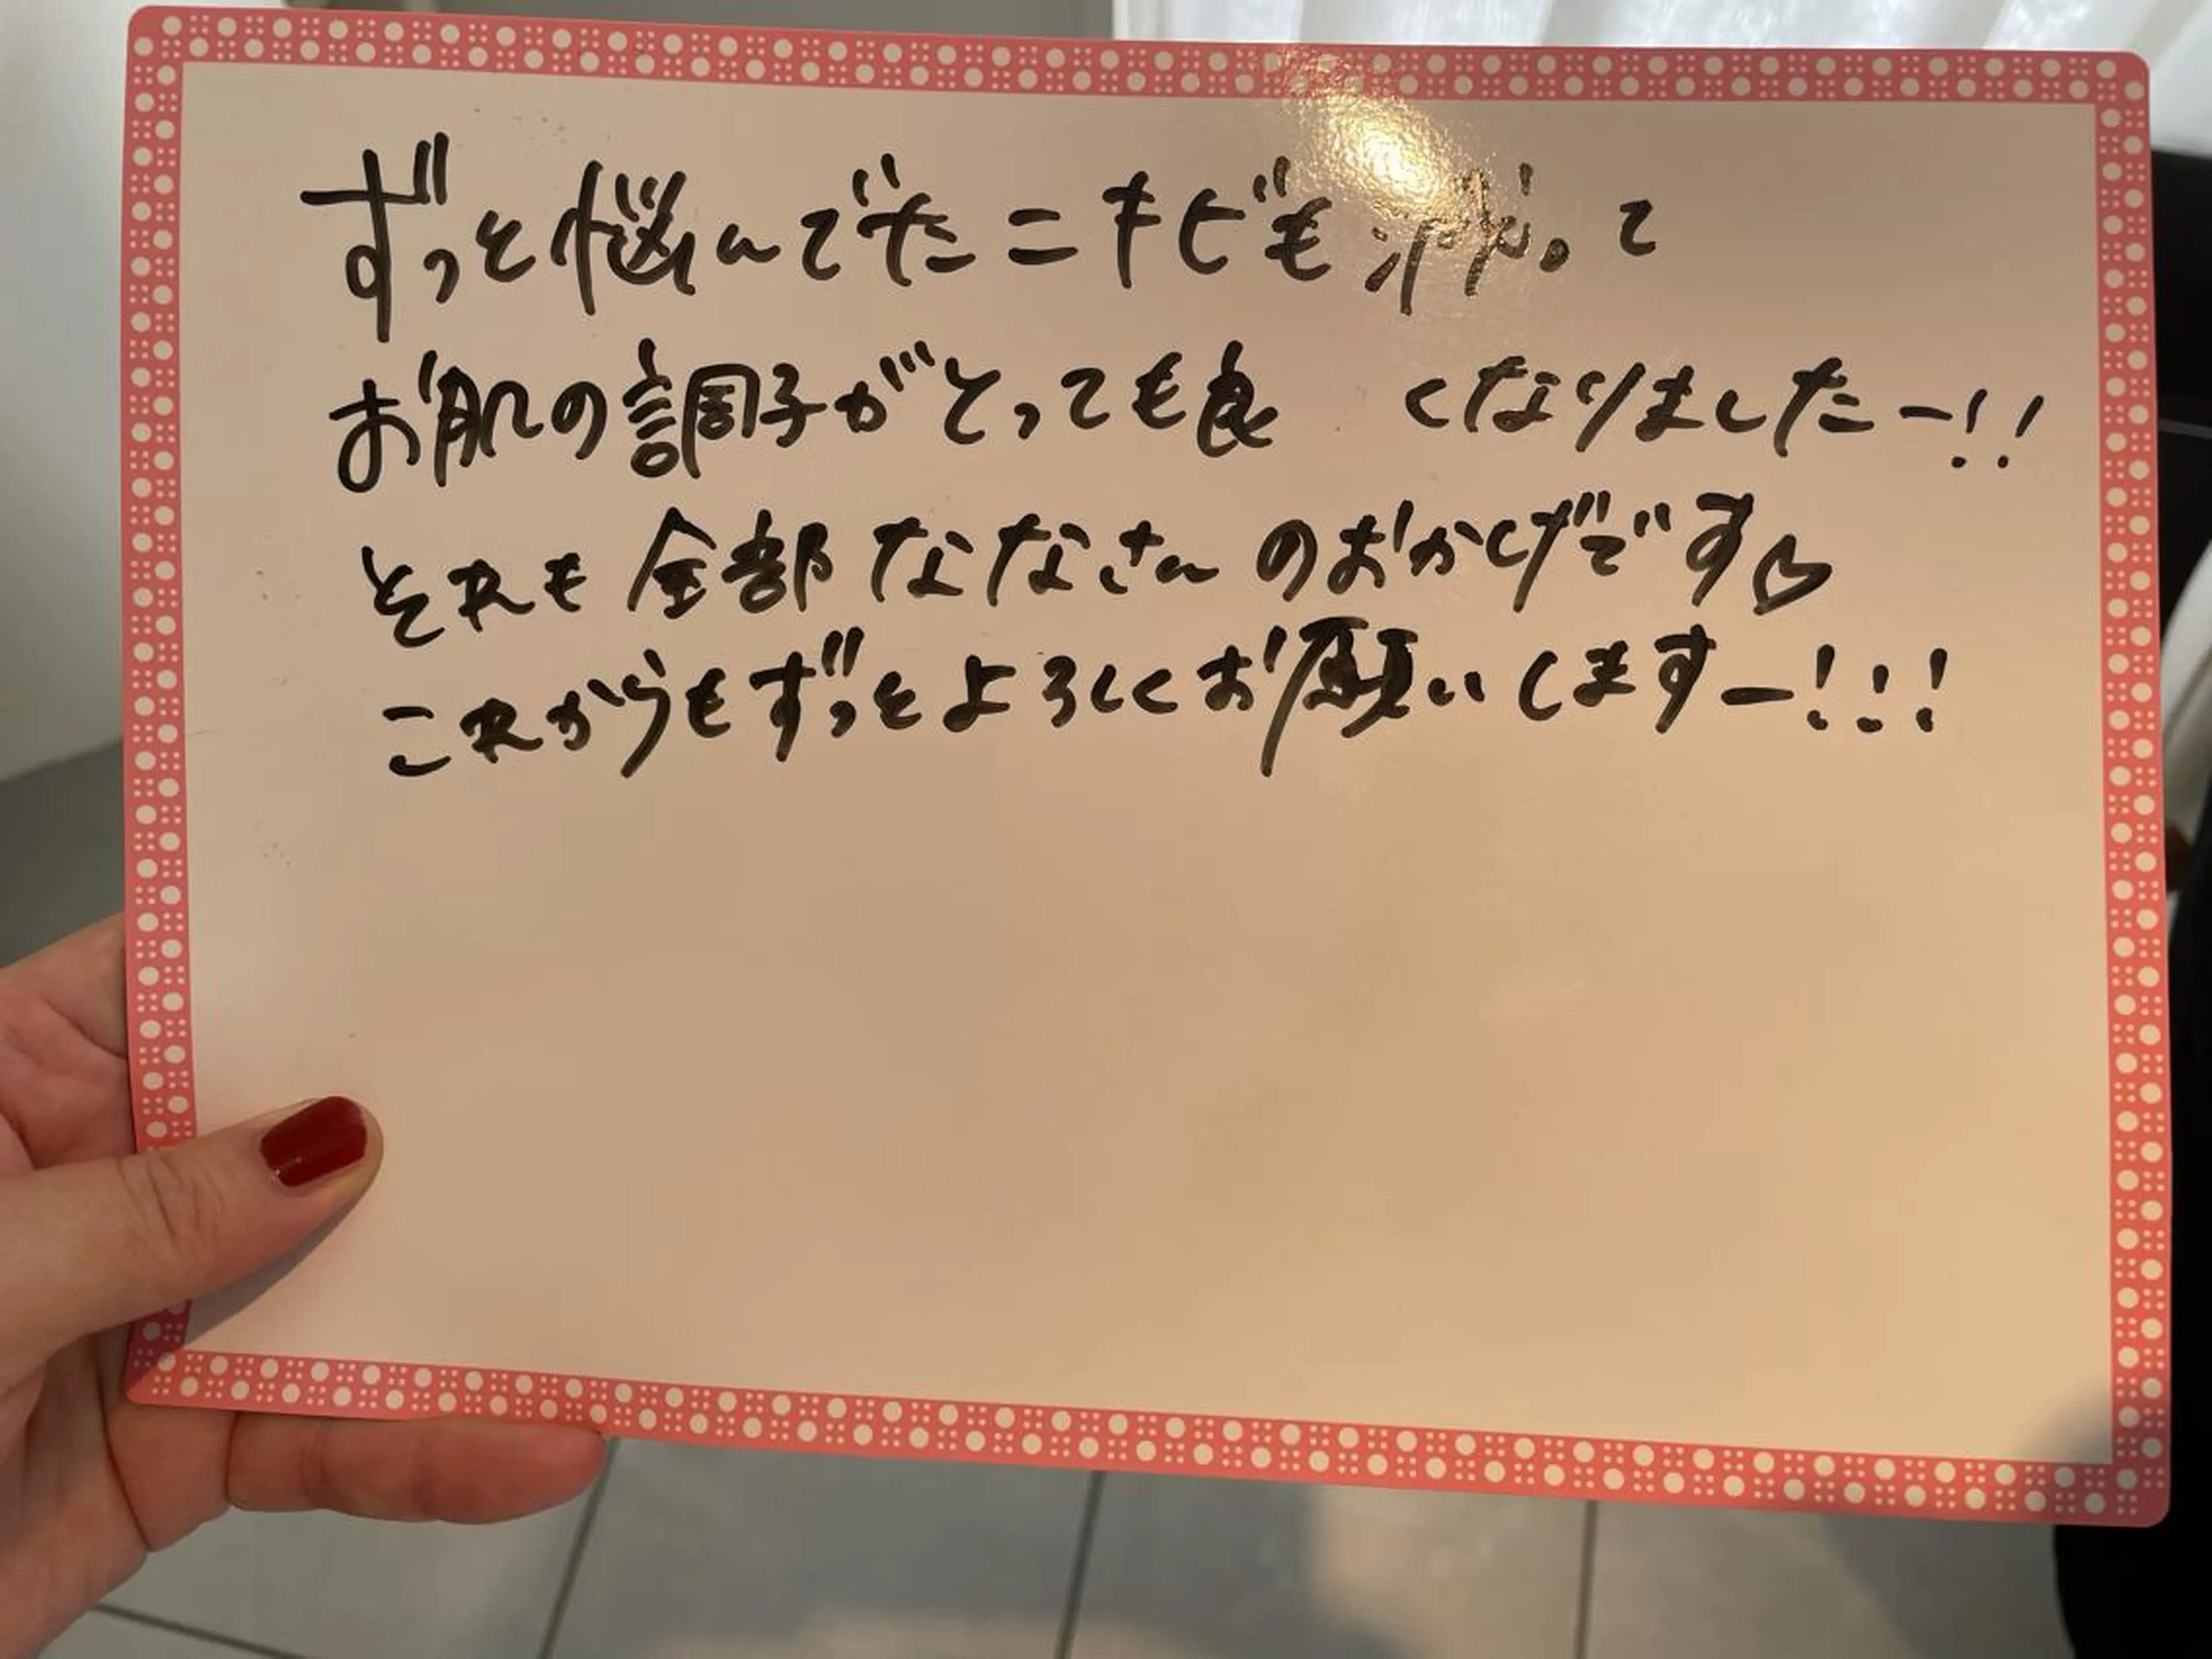 ずっと悩んでたニキビも減って
お肌の調子がとっても良くなりましたー!!
それも全部ななさんのおかげです♡
これからもずっとよろしくお願いしますー!!!